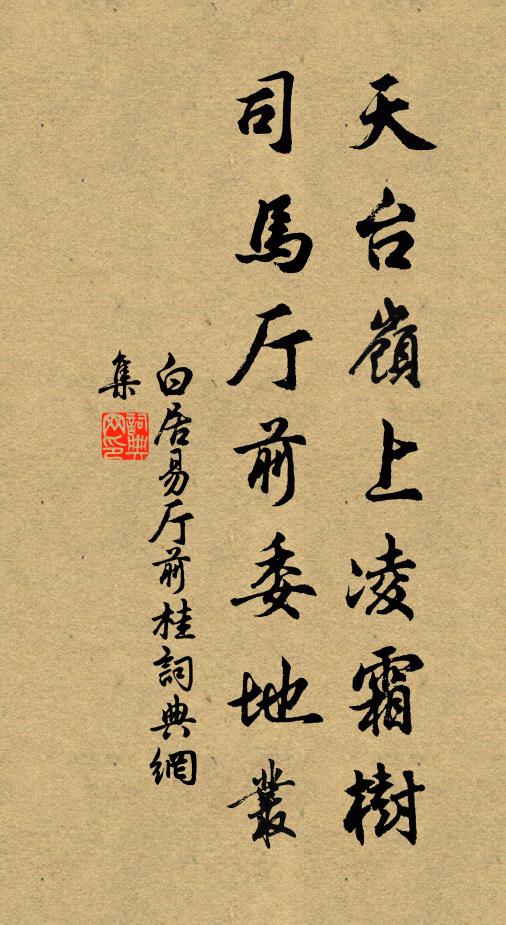 天台嶺上凌霜樹
司馬厅前委地叢
白居易厅前桂詞典網
集
詞典
网印